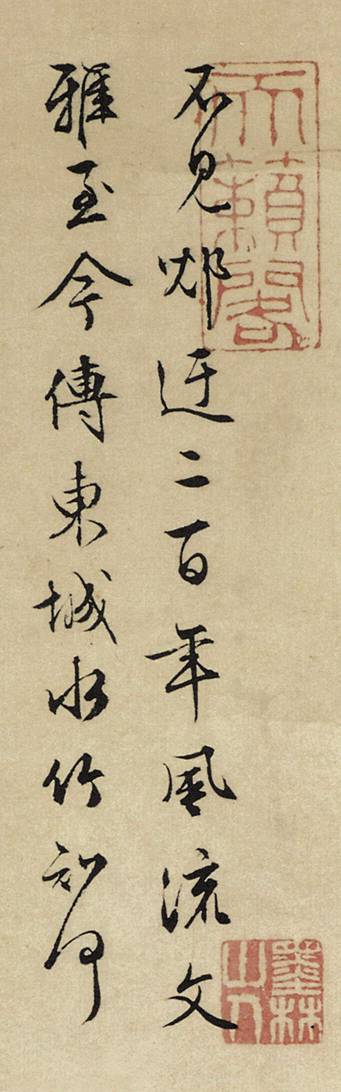 天籟閣
不見郳迂二百年風流文
雅至今傳東城水竹知何
墨林山人